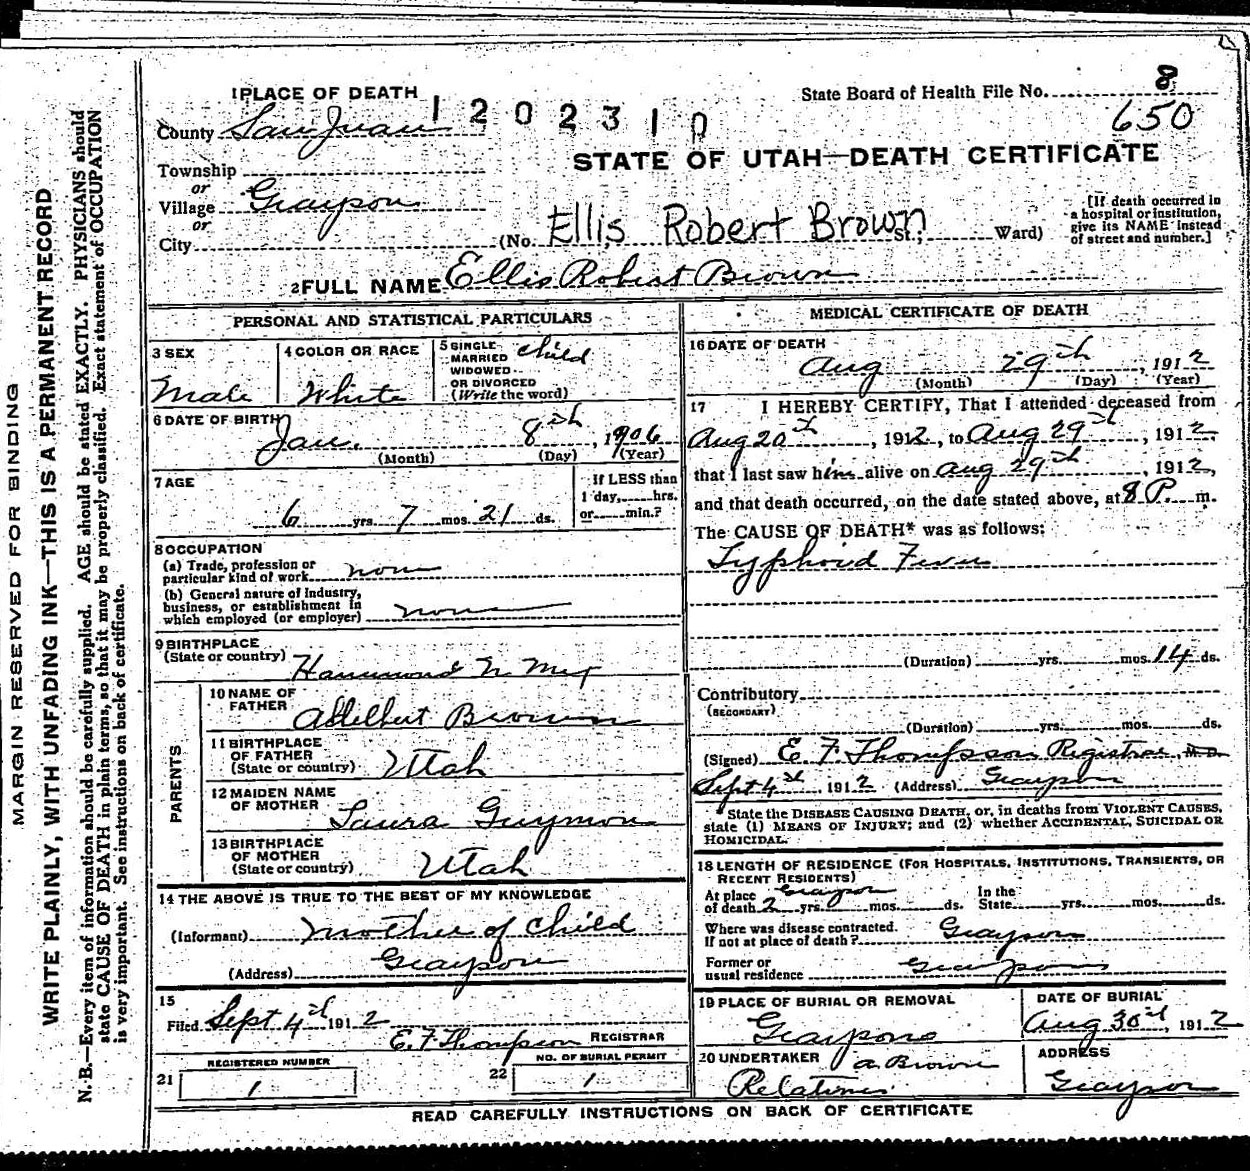 1 PLACE OF DEATH
1202310
State Board of Health File No. 8
650
County San Juan
STATE OF UTAH—DEATH CERTIFICATE
Township
or
Village Grayson
or
City
(No. Ellis Robert Brown St.; Ward)
[If death occurred in
a hospital or institution,
give its NAME instead
of street and number.]
2 FULL NAME Ellis Robert Brown
PERSONAL AND STATISTICAL PARTICULARS
3 SEX
Male
4 COLOR OR RACE
White
5 SINGLE
MARRIED
WIDOWED
OR DIVORCED
(Write the word)
child
6 DATE OF BIRTH
Jan. 8th, 1906
(Month) (Day) (Year)
7 AGE
6 yrs. 7 mos. 21 ds.
If LESS than
1 day, hrs.
or min.?
8 OCCUPATION
(a) Trade, profession or
particular kind of work none
(b) General nature of industry,
business, or establishment in
which employed (or employer) none
9 BIRTHPLACE
(State or country) Hammond N. Mex
PARENTS
10 NAME OF
FATHER Adelbert Brown
11 BIRTHPLACE
OF FATHER
(State or country) Utah
12 MAIDEN NAME
OF MOTHER Laura Guymon
13 BIRTHPLACE
OF MOTHER
(State or country) Utah
14 THE ABOVE IS TRUE TO THE BEST OF MY KNOWLEDGE
(Informant) Mother of Child
(Address) Grayson
15
Filed Sept 4th 1912 E. F. Thompson REGISTRAR
REGISTERED NUMBER
21 1
NO. OF BURIAL PERMIT
22 1
MEDICAL CERTIFICATE OF DEATH
16 DATE OF DEATH
Aug 29th, 1912
(Month) (Day) (Year)
17 I HEREBY CERTIFY, That I attended deceased from
Aug 20th, 1912, to Aug 29th, 1912,
that I last saw him alive on Aug 29th, 1912,
and that death occurred, on the date stated above, at 8 P. m.
The CAUSE OF DEATH* was as follows:
Typhoid Fever
(Duration) yrs. mos. 14 ds.
Contributory
(SECONDARY)
(Duration) yrs. mos. ds.
(Signed) E. F. Thompson Registrar, M.D.
Sept 4th, 1912 (Address) Grayson
*State the DISEASE CAUSING DEATH, or, in deaths from VIOLENT CAUSES,
state (1) MEANS OF INJURY; and (2) whether ACCIDENTAL, SUICIDAL OR
HOMICIDAL.
18 LENGTH OF RESIDENCE (FOR HOSPITALS, INSTITUTIONS, TRANSIENTS, OR
RECENT RESIDENTS)
At place Grayson In the
of death 2 yrs. mos. ds. State yrs. mos. ds.
Where was disease contracted,
If not at place of death? Grayson
Former or
usual residence Grayson
19 PLACE OF BURIAL OR REMOVAL
Grayson
DATE OF BURIAL
Aug 30th, 1912
20 UNDERTAKER A. Brown
Relatives
ADDRESS
Grayson
READ CAREFULLY INSTRUCTIONS ON BACK OF CERTIFICATE
MARGIN RESERVED FOR BINDING
WRITE PLAINLY, WITH UNFADING INK—THIS IS A PERMANENT RECORD
N. B.—Every item of information should be carefully supplied. AGE should be stated EXACTLY. PHYSICIANS should
state CAUSE OF DEATH in plain terms, so that it may be properly classified. Exact statement of OCCUPATION
is very important. See instructions on back of certificate.